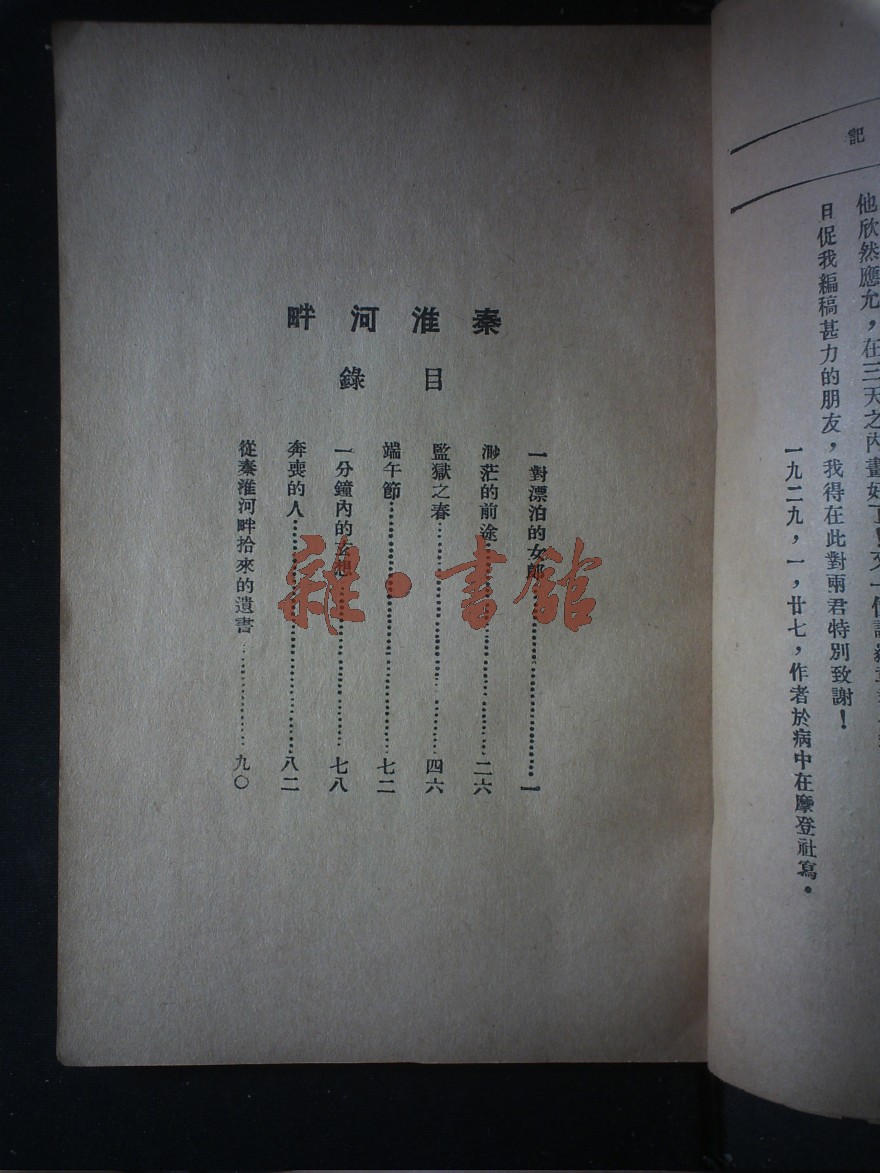 記
他欣然應允，在三天之內畫好了！又一位
日促我編稿甚力的朋友，我得在此對兩君特別致謝！
一九二九，一，廿七，作者於病中在摩登社寫。
秦淮河畔
目錄
一對漂泊的女郎…………………一
渺茫的前途…………………二六
監獄之春…………………四六
端午節…………………七二
一分鐘內的玄想…………………七八
奔喪的人…………………八二
從秦淮河畔拾來的遺書…………九〇
雜·書館